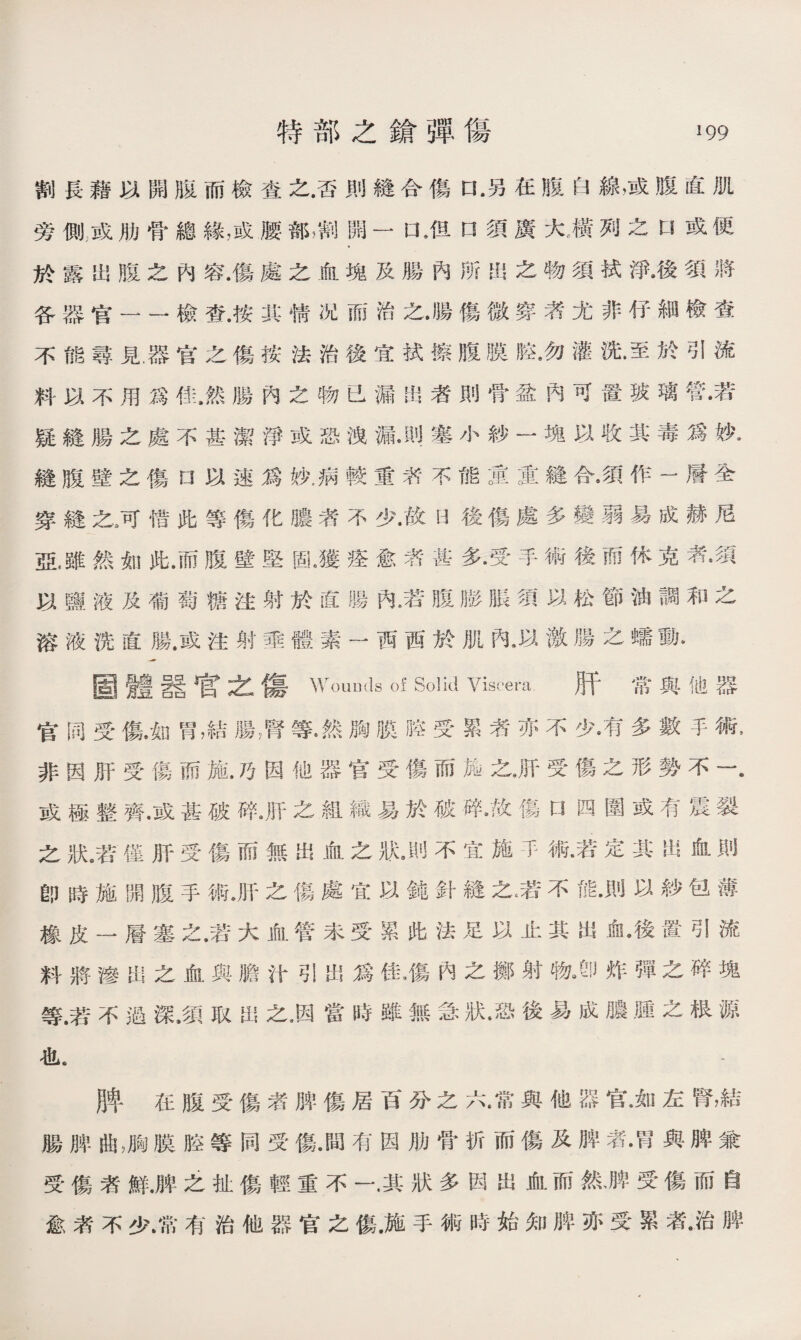 特部之鎗彈傷 199
割長藉以開腹而檢查之.否則縫合傷口.另在腹白線,或腹直肌
旁側,或肋骨總緣,或腰部,割開一口.但口須廣大.橫列之口或便
於露出腹之內容.傷處之血塊及腸內所出之物須拭淨。後須將
各器官一一檢查.按其情况而治之.腸傷微穿者尤非仔細檢查
不能尋見.器官之傷按法治後宜拭擦腹膜腔.勿灌洗.至於引流
料以不用爲佳.然腸內之物已漏出者則骨盆內可置玻璃管.若
疑縫腸之處不甚潔淨或恐洩漏.則塞小紗一塊以收其毒爲妙。
縫腹壁之傷口以速爲妙.病較重者不能重重縫合.須作一層全
穿縫之。可惜此等傷化膿者不少.故日後傷處多變弱易成赫尼
亞.雖然如此.而腹壁堅固.獲痊愈者甚多.受手術後而休克者.須
以鹽液及葡萄糖注射於直腸內.若腹膨脹須以松節油調和之
溶液洗直腸.或注射垂體素一西西於肌內.以激腸之蠕動。
固體器官之傷 Wounds of Solid Viscera 肝 常與他器
官同受傷.如胃,結腸,腎等.然胸膜腔受累者亦不少.有多數手術,
非因肝受傷而施.乃因他器官受傷而施之.肝受傷之形勢不一.
或極整齊.或甚破碎.肝之組織易於破碎.故傷口四圍或有震裂
之狀。若僅肝受傷而無出血之狀。則不宜施手術.若定其出血則
卽時施開腹手術.肝之傷處宜以鈍針縫之.若不能.則以紗包薄
橡皮一層塞之.若大血管未受累此法足以止其出血。後置引流
料將滲出之血與膽汁引出爲佳.傷內之擲射物.卽炸彈之碎塊
等.若不過深.須取出之.因當時雖無急狀.恐後易成膿腫之根源
也。
脾 在腹受傷者脾傷居百分之六.常與他器官.如左腎,結
腸脾曲,胸膜腔等同受傷.間有因肋骨折而傷及脾者.胃與脾兼
受傷者鮮.脾之扯傷輕重不一.其狀多因出血而然.脾受傷而自
愈者不少.常有治他器官之傷.施手術時始知脾亦受累者.治脾